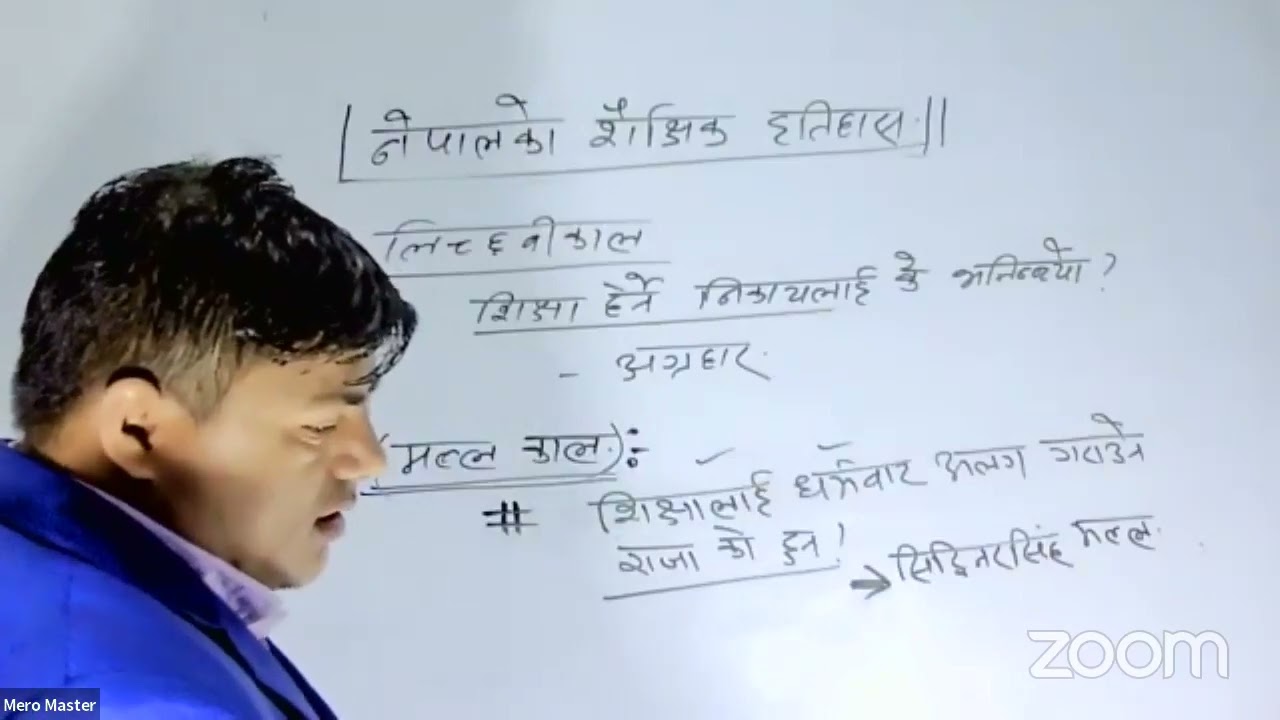 नेपालको शैक्षिक इतिहास
लिच्छवीकाल
शिक्षा हेर्ने निकायलाई के भनिन्थ्यो?
- अग्रहार
(मल्ल काल):
# शिक्षालाई धर्मबाट अलग गराउने
राजा को हुन्!
→ सिद्धिनरसिंह मल्ल
zoom
Mero Master